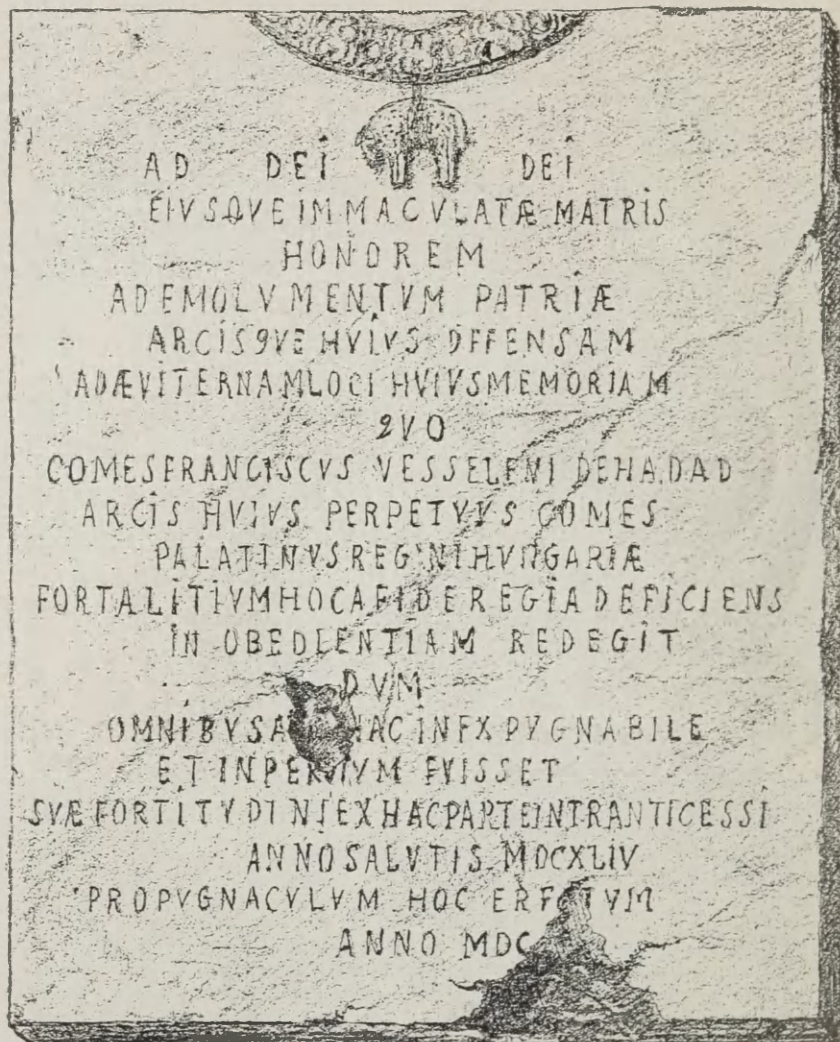 AD DEI DEI
EIVSQVE IMMACVLATÆ MATRIS
HONOREM
AD EMOLVMENTVM PATRIÆ
ARCIS QVE HVIVS DFFENSAM
AD ÆVITERNAM LOCI HVIVS MEMORIAM
QVO
COMES FRANCISCVS VESSELENI DE HADAD
ARCIS HVIVS PERPETVVS COMES
PALATINVS REGNI HVNGARIÆ
FORTALITIVM HOC A FIDE REGIA DEFICIENS
IN OBEDIENTIAM REDEGIT
DVM
OMNIBVS HAC INEXPVGNABILE
ET INPERVIVM FVISSET
SVÆ FORTITVDINI EX HAC PARTE INTRANTI CESSI
ANNO SALVTIS MDCXLIV
PROPVGNACVLVM HOC ERECTVM
ANNO MDC